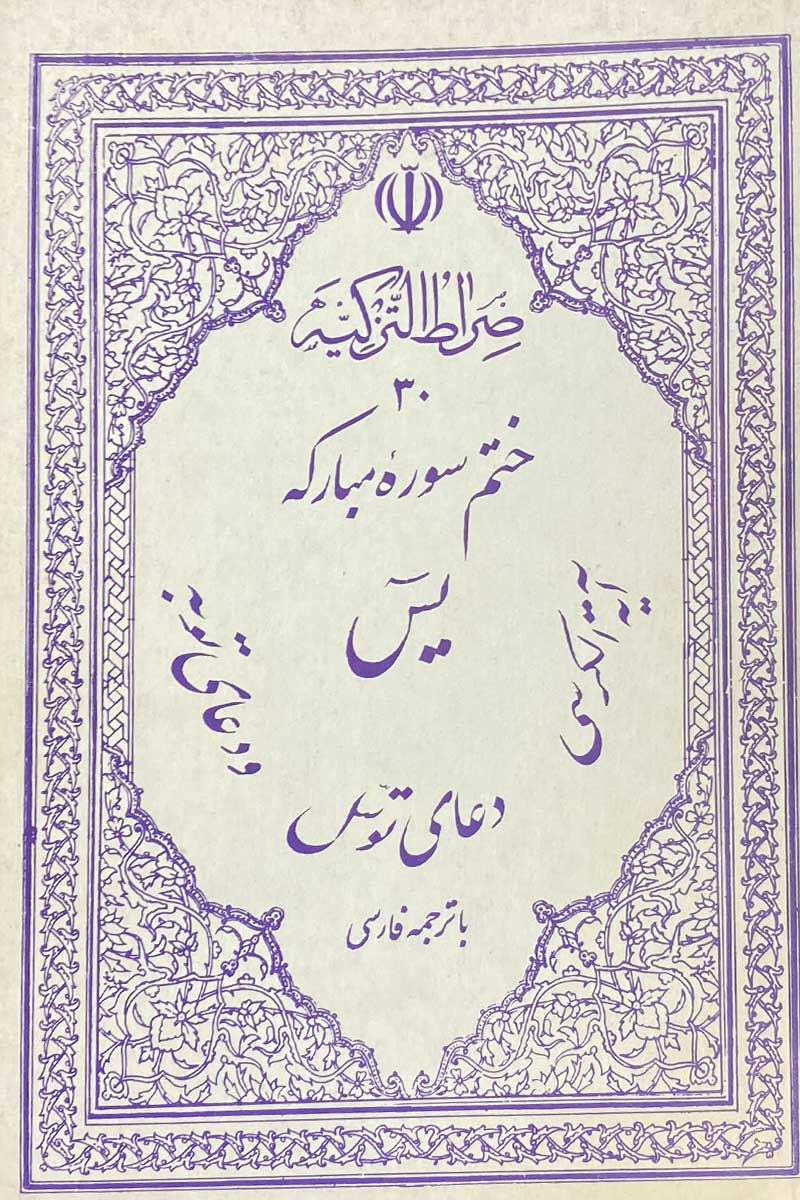 صُراطُ التَّزكیَّه
۳۰
ختم سورهٔ مبارکه
یسَ
آیة الکرسی
و دعای توبه
دعای توسّل
با ترجمه فارسی